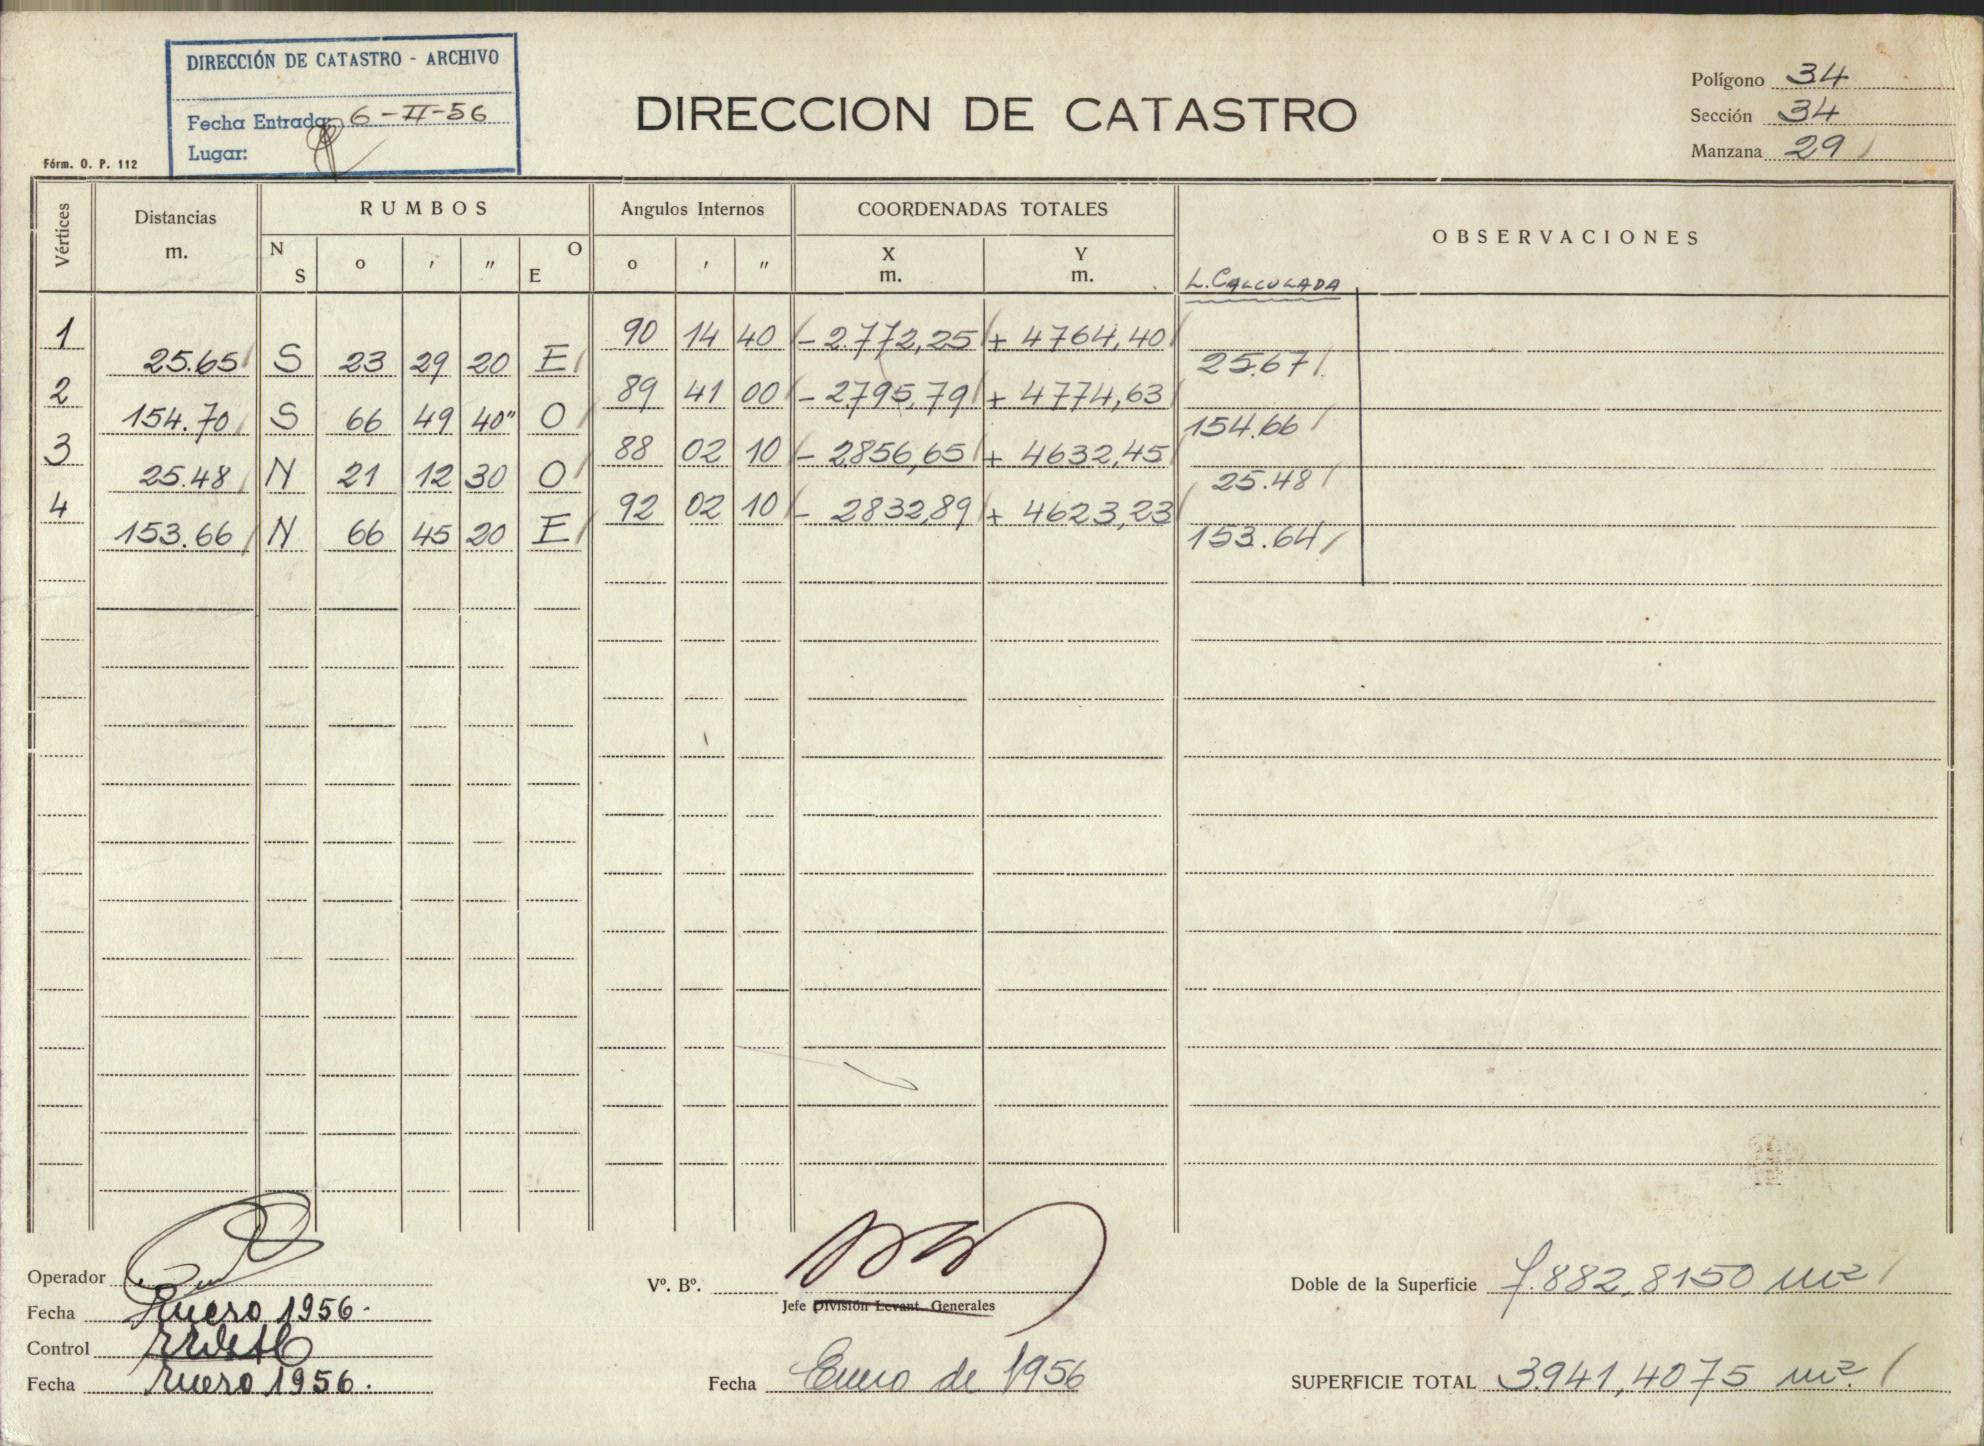 DIRECCIÓN DE CATASTRO - ARCHIVO
Fecha Entrada: 6-II-56
Lugar:
Fórm. O. P. 112
DIRECCION DE CATASTRO
Polígono 34
Sección 34
Manzana 29
Vértices
Distancias
m.
RUMBOS
N
S
o
'
"
O
E
Angulos Internos
o
'
"
COORDENADAS TOTALES
X
m.
Y
m.
OBSERVACIONES
L. CALCULADA
1 90 14 40 - 2.772,25 + 4764,40
25.65 S 23 29 20 E 25.67
2 89 41 00 - 2795,79 + 4774,63
154.70 S 66 49 40" O 154.66
3 88 02 10 - 2856,65 + 4632,45
25.48 N 21 12 30 O 25.48
4 92 02 10 - 2832,89 + 4623,23
153.66 N 66 45 20 E 153.64
Operador
Fecha Enero 1956.
Control
Fecha Enero 1956.
Vº. Bº.
Jefe División Levant. Generales
Fecha Enero de 1956
Doble de la Superficie 7.882,8150 m²
SUPERFICIE TOTAL 3.941,4075 m².